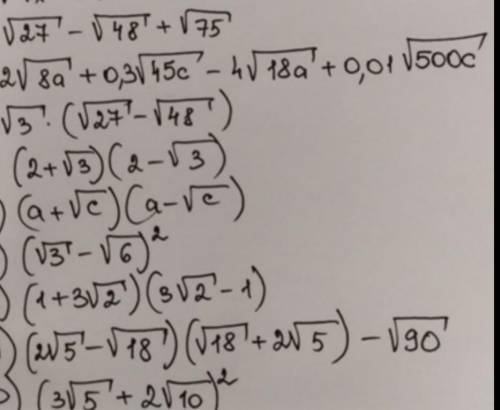 √27 - √48 + √75
2√8a + 0,3√45c - 4√18a + 0,01√500c
√3 · (√27 - √48)
(2 + √3)(2 - √3)
) (a + √c)(a - √c)
) (√3 - √6)²
) (1 + 3√2)(3√2 - 1)
) (2√5 - √18)(√18 + 2√5) - √90
) (3√5 + 2√10)²